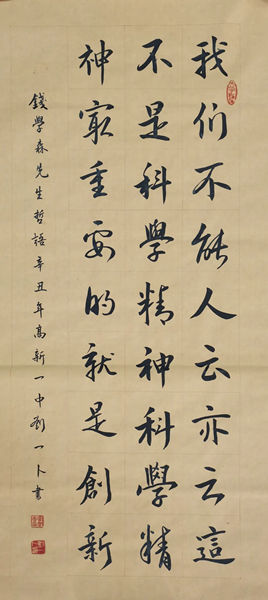 我们不能人云亦云這
不是科學精神科學精
神冣重要的就是創新
錢學森先生哲語辛丑年高新一中劉一卜書